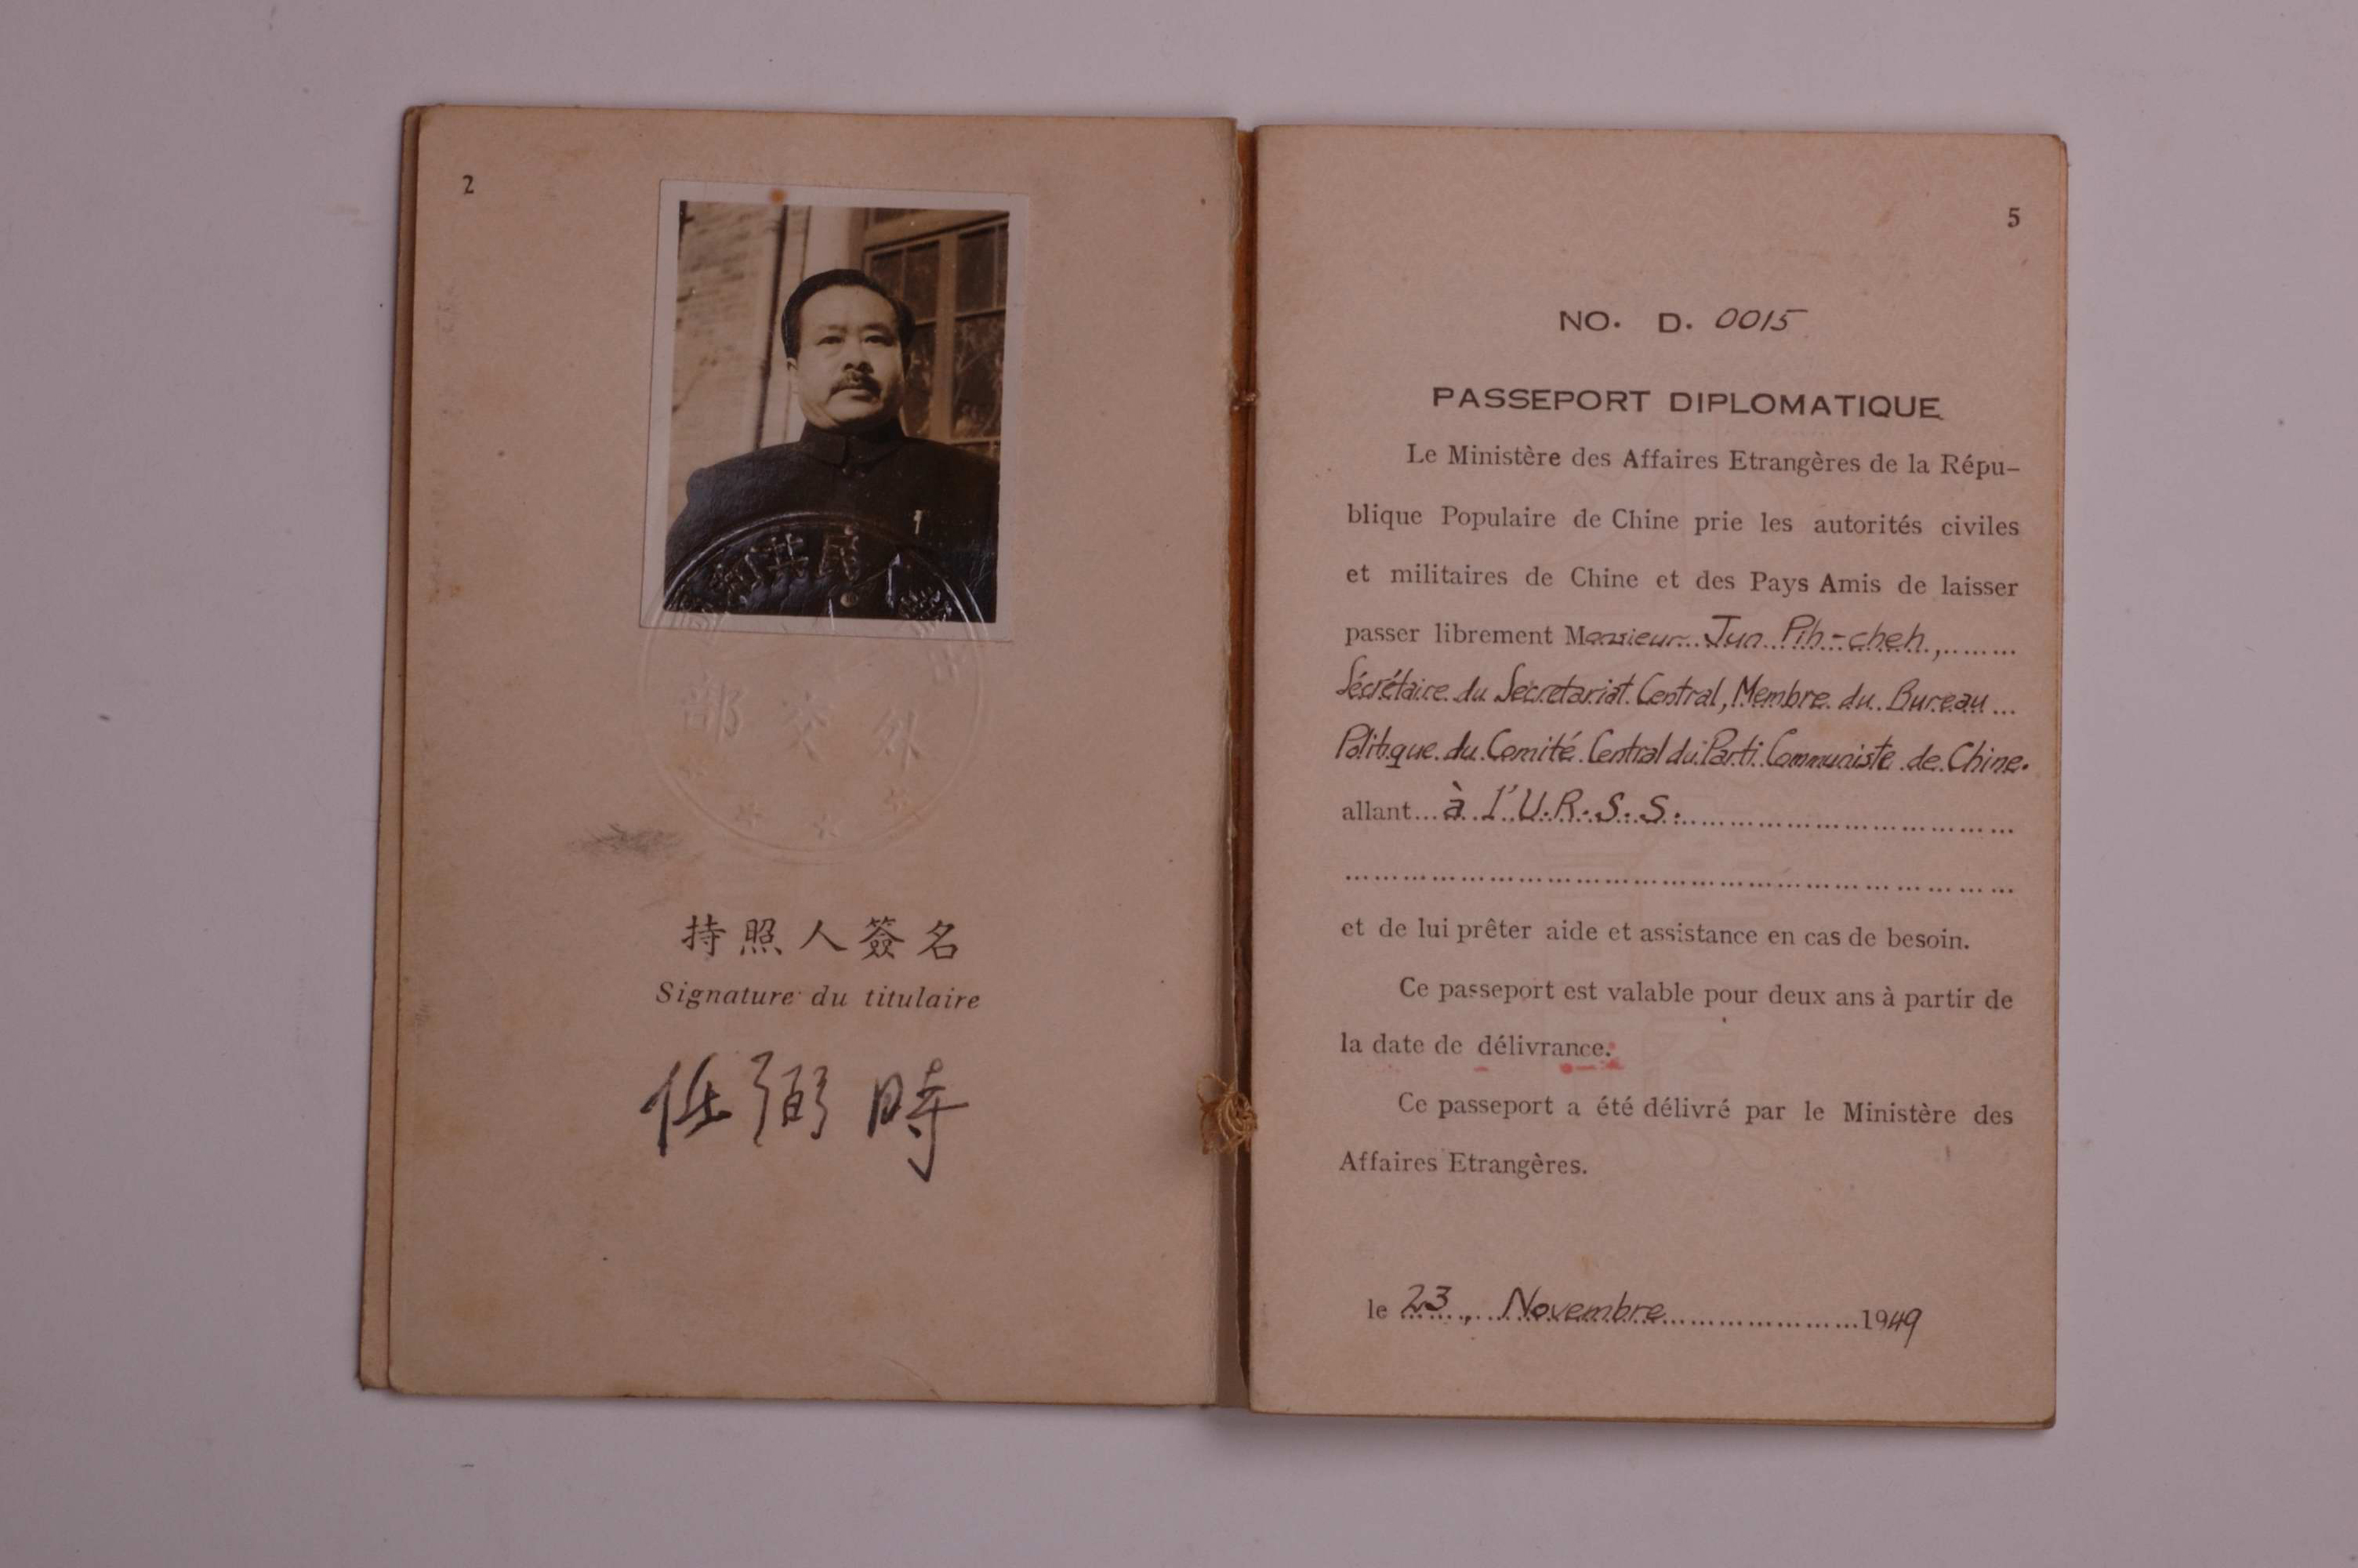 2
民共和
外交部
持照人簽名
Signature du titulaire
任弼時
5
NO. D. 0015
PASSEPORT DIPLOMATIQUE
Le Ministère des Affaires Etrangères de la Répu-
blique Populaire de Chine prie les autorités civiles
et militaires de Chine et des Pays Amis de laisser
passer librement Monsieur Jun Pih-cheh,
Sécrétaire du Secretariat Central, Membre du Bureau
Politique du Comité Central du Parti Communiste de Chine.
allant à l'U.R.S.S.
et de lui prêter aide et assistance en cas de besoin.
Ce passeport est valable pour deux ans à partir de
la date de délivrance.
Ce passeport a été délivré par le Ministère des
Affaires Etrangères.
le 23, Novembre 1949